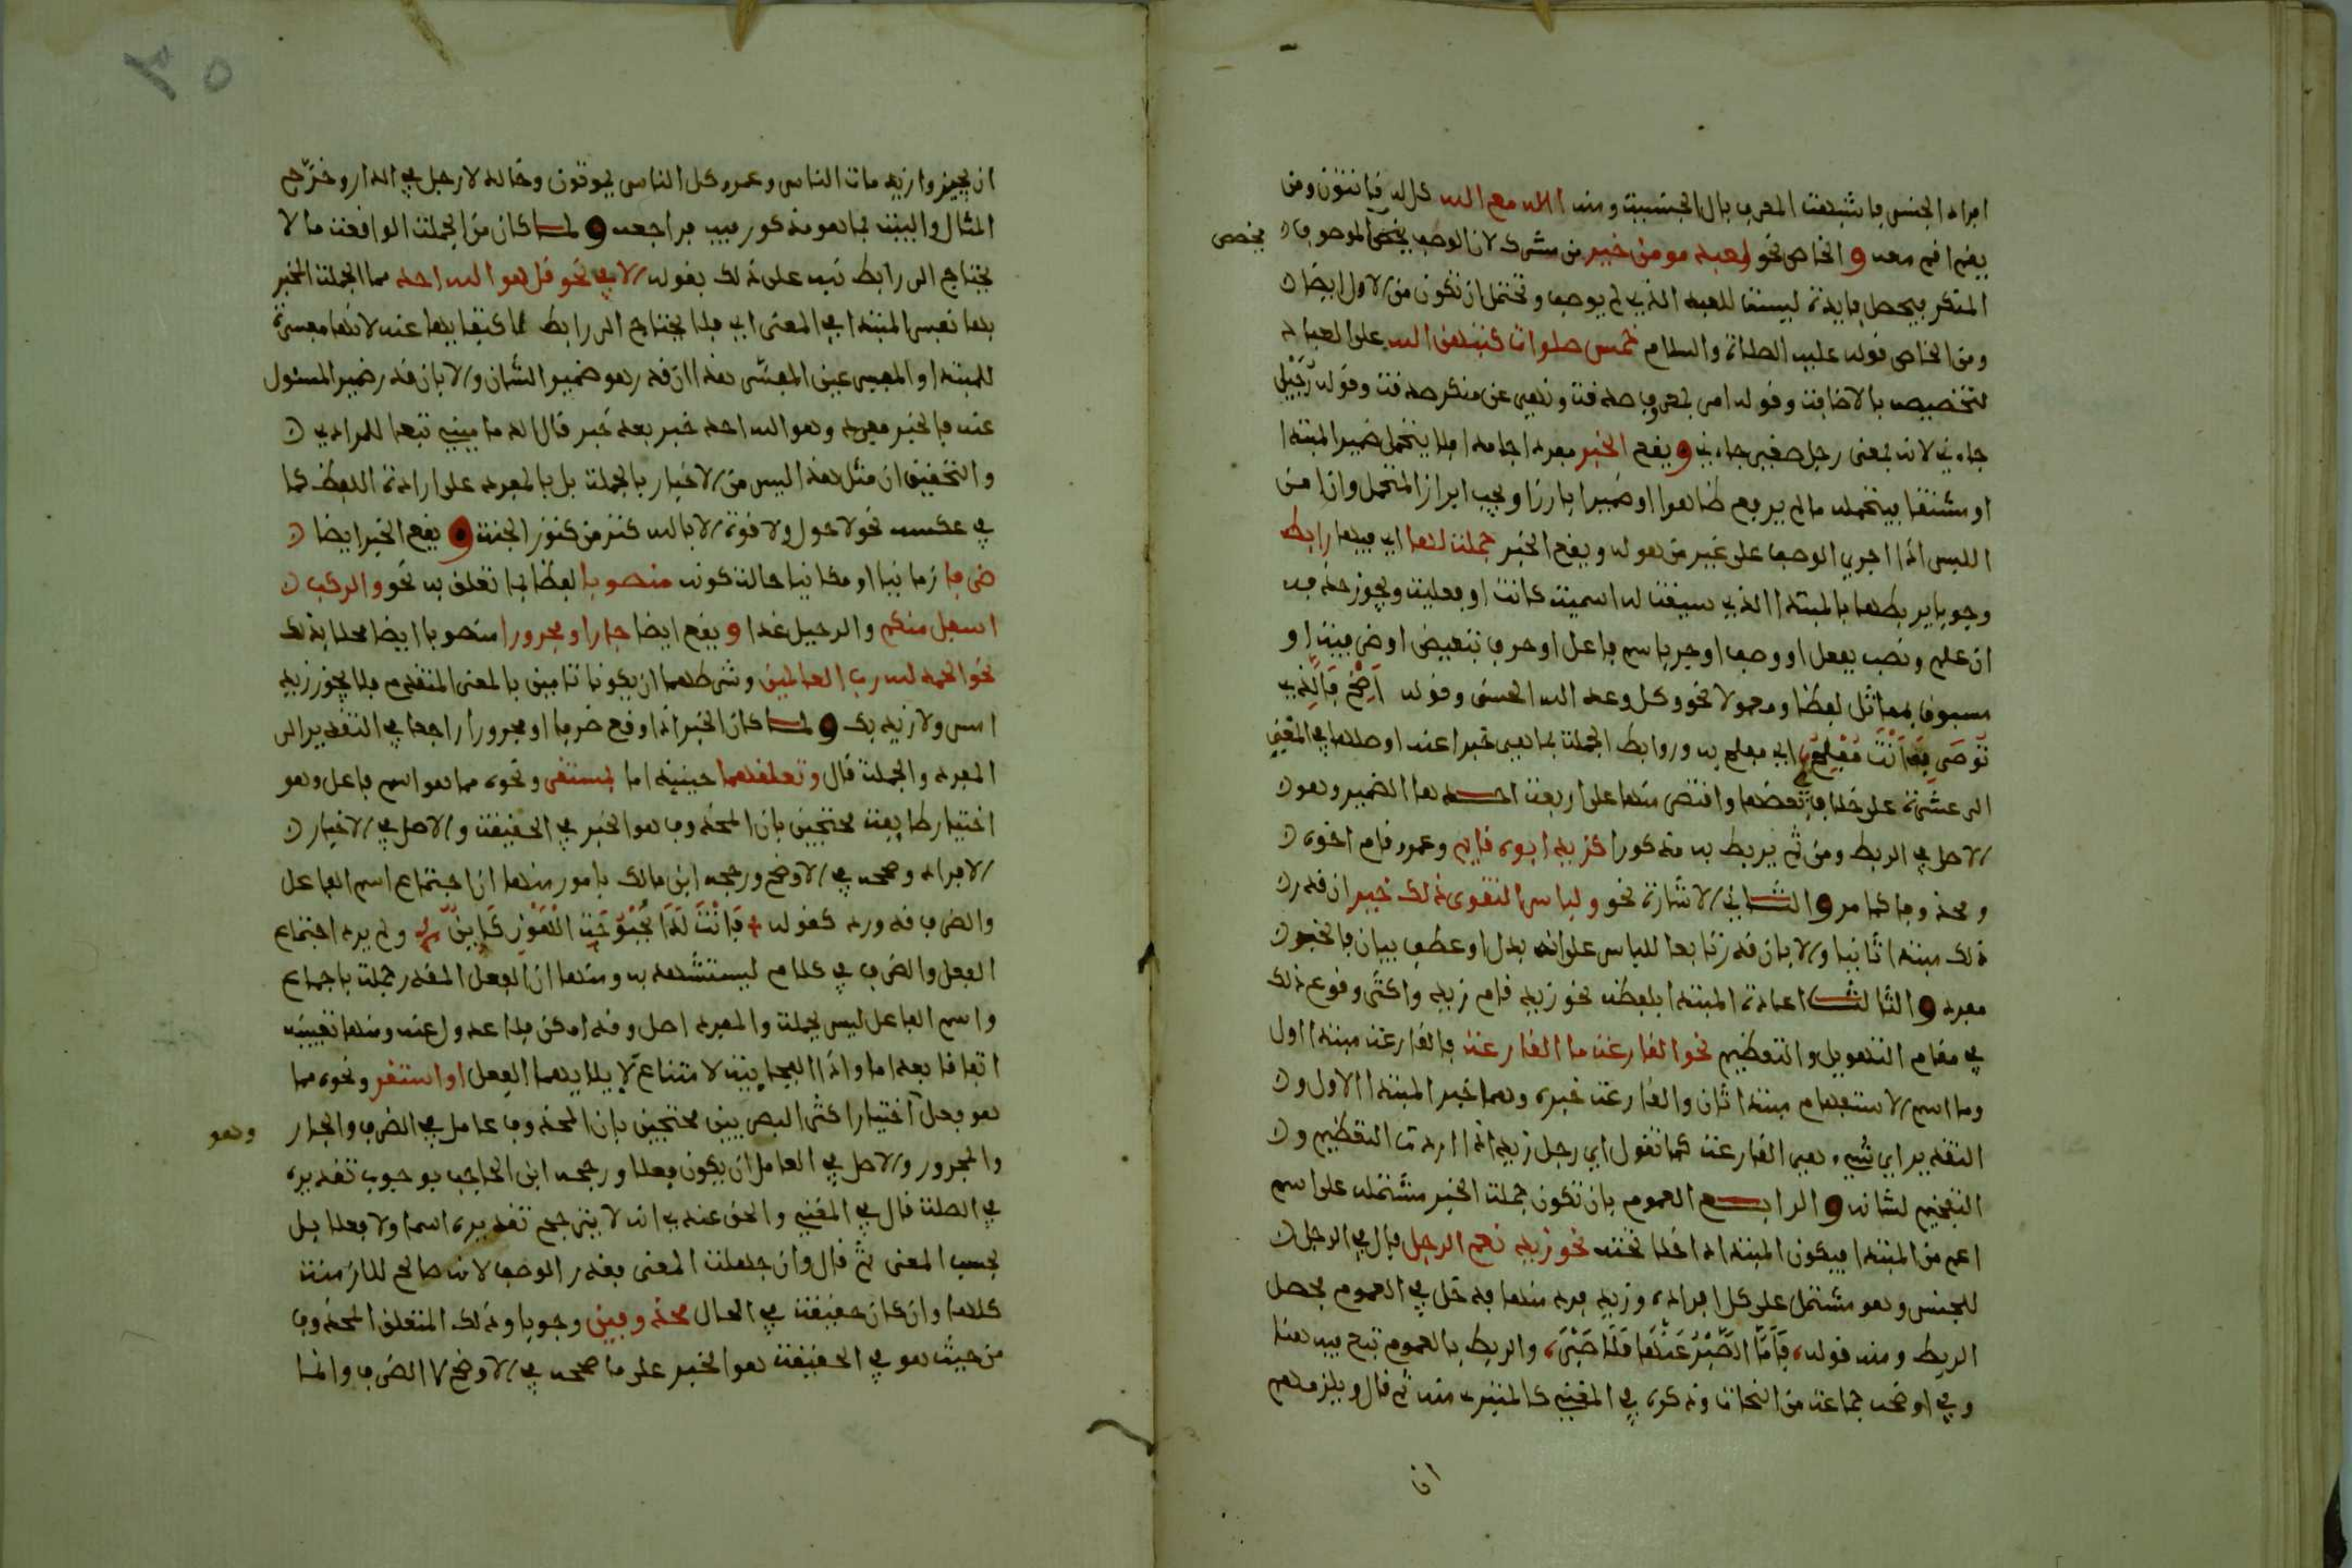 افراد الجنس فاشبهت المعرف بال الجنسية ومنه االه مع الله كل له قانتون ومن
يقم اقم معه والخاص نحو لعبد مومن خير من مشرك لان الوصف يخص الموصوف
يخصص
المنكر فيحصل فايدة ليست للعبد الذي لم يوصف وتحتمل ان تكون من الاول ايضا
ومن الخاص قوله عليه الصلاة والسلام خمس صلوات كتبهن الله على العباد
لتخصيصه بالاضافة وقوله امر بمعروف صدقة ونهي عن منكر صدقة وقوله رجيل
جاءني لانه بمعنى رجل صغير جاءني ويقع الخبر مفردا جامدا فلا يتحمل ضمير المبتدا
او مشتقا فيتحمله مالم يرفع ظاهرا او ضميرا بارزا ويجب ابراز المتحمل وان امن
اللبس اذا اجري الوصف على غير من هو له ويقع الخبر جملة لها اي فيها رابط
وجوبا يربطها بالمبتدا الذي سيقت له اسمية كانت او فعلية ويجوز حذفه
ان علم ونصب بفعل او وصف او جر باسم فاعل او حرف تبعيض او ظرفية او
مسبوق بمماثل لفظا ومعمولا نحو وكل وعد الله الحسنى وقوله اصخ فالذي
توصى به انت مفلح اي مفلح به وروابط الجملة بما هي خبرا عنه اوصلها في المغني
الى عشرة على خلاف في بعضها واقتصر منها على اربعة احدها الضمير وهو
الاصل في الربط ومن ثم يربط به مذكورا كزيد ابوه قايم وعمرو قام اخوه
ومحذوفا كما مر والثاني الاشارة نحو ولباس التقوى ذلك خير ان قدر
ذلك مبتدا ثانيا والا بان قدر تابعا للباس على انه بدل او عطف بيان فالخبر
مفرد والثالث اعادة المبتدا بلفظه نحو زيد قام زيد واكثر وقوع ذلك
في مقام التهويل والتعظيم نحو القارعة ما القارعة فالقارعة مبتدا اول
وما اسم الاستفهام مبتدا ثان والقارعة خبره وهما خبر المبتدا الاول و
التقدير اي شيء هي القارعة كما تقول اي رجل زيد اذا اردت التعظيم و
التفخيم لشانه والرابع العموم بان تكون جملة الخبر مشتملة على اسم
اعم من المبتدا فيكون المبتدا داخلا تحته نحو زيد نعم الرجل فال في الرجل
للجنس وهو مشتمل على كل افراده وزيد فرد منها فدخل في العموم فحصل
الربط ومنه قوله فاما الصبر عنها فلا صبرا والربط بالعموم تبع فيه هنا
وفي اوضحه جماعة من النحاة وذكره في المغني كالمتبرء منه ثم قال ويلزمهم
ان
ان يجيزوا زيد مات الناس وعمرو كل الناس يموتون وخالد لا رجل في الدار وخرج
المثال والبيت بما هو مذكور فيه فراجعه ولما كان من الجملة الواقعة ما لا
يحتاج الى رابط نبه على ذلك بقوله الا في نحو قل هو الله احد مما الجملة الخبر
بها نفس المبتدا في المعنى اي فلا يحتاج الى رابط اكتفا بها عنه لانها مفسرة
للمبتدا والمفسر عين المفسر هذا ان قدر هو ضمير الشان والا بان قدر ضمير المسئول
عنه فالخبر مفرد وهو الله احد خبر بعد خبر قال الدماميني تبعا للمرادي
والتحقيق ان مثل هذا ليس من الاخبار بالجملة بل بالمفرد على ارادة اللفظ كما
في عكسه نحو لا حول ولا قوة الا بالله كنز من كنوز الجنة ويقع الخبر ايضا
ظرفا زمانيا او مكانيا حالة كونه منصوبا لفظا بما تعلق به نحو والركب
اسفل منكم والرحيل غدا ويقع ايضا جارا ومجرورا منصوبا ايضا محلا بذلك
نحو الحمد لله رب العالمين وشرطهما ان يكونا تامين بالمعنى المتقدم فلا يجوز زيد
امس ولا زيد بك ولما كان الخبر اذا وقع ظرفا او مجرورا راجعا في التقدير الى
المفرد والجملة قال وتعلقهما حينيذ اما بمستقر ونحوه مما هو اسم فاعل وهو
اختيار طايفة محتجين بان المحذوف هو الخبر في الحقيقة والاصل في الاخبار
الافراد وصححه في الاوضح ورجحه ابن مالك بامور منها ان اجتماع اسم الفاعل
والظرف قد ورد كقوله فانت لدى بحبوحة الهون كاين ولم يرد اجتماع
الفعل والظرف في كلام يستشهد به ومنها ان الفعل المقدر جملة باجماع
واسم الفاعل ليس بجملة والمفرد اصل وقد امكن فلا عدول عنه ومنها تعيينه
اتفاقا بعد اما واذا الفجايية لامتناع ايلايهما الفعل او استقر ونحوه مما
هو فعل اختيار اكثر البصريين محتجين بان المحذوف عامل في الظرف والجار
وهو
والمجرور والاصل في العامل ان يكون فعلا ورجحه ابن الحاجب بوجوب تقديره
في الصلة قال في المغني والحق عندي انه لا يترجح تقديره اسما ولا فعلا بل
بحسب المعنى ثم قال وان جهلت المعنى فقدر الوصف لانه صالح للازمنة
كلها وان كان حقيقة في الحال محذوفين وجوبا وذلك المتعلق المحذوف
من حيث هو في الحقيقة هو الخبر على ما صححه في الاوضح لا الظرف وانما